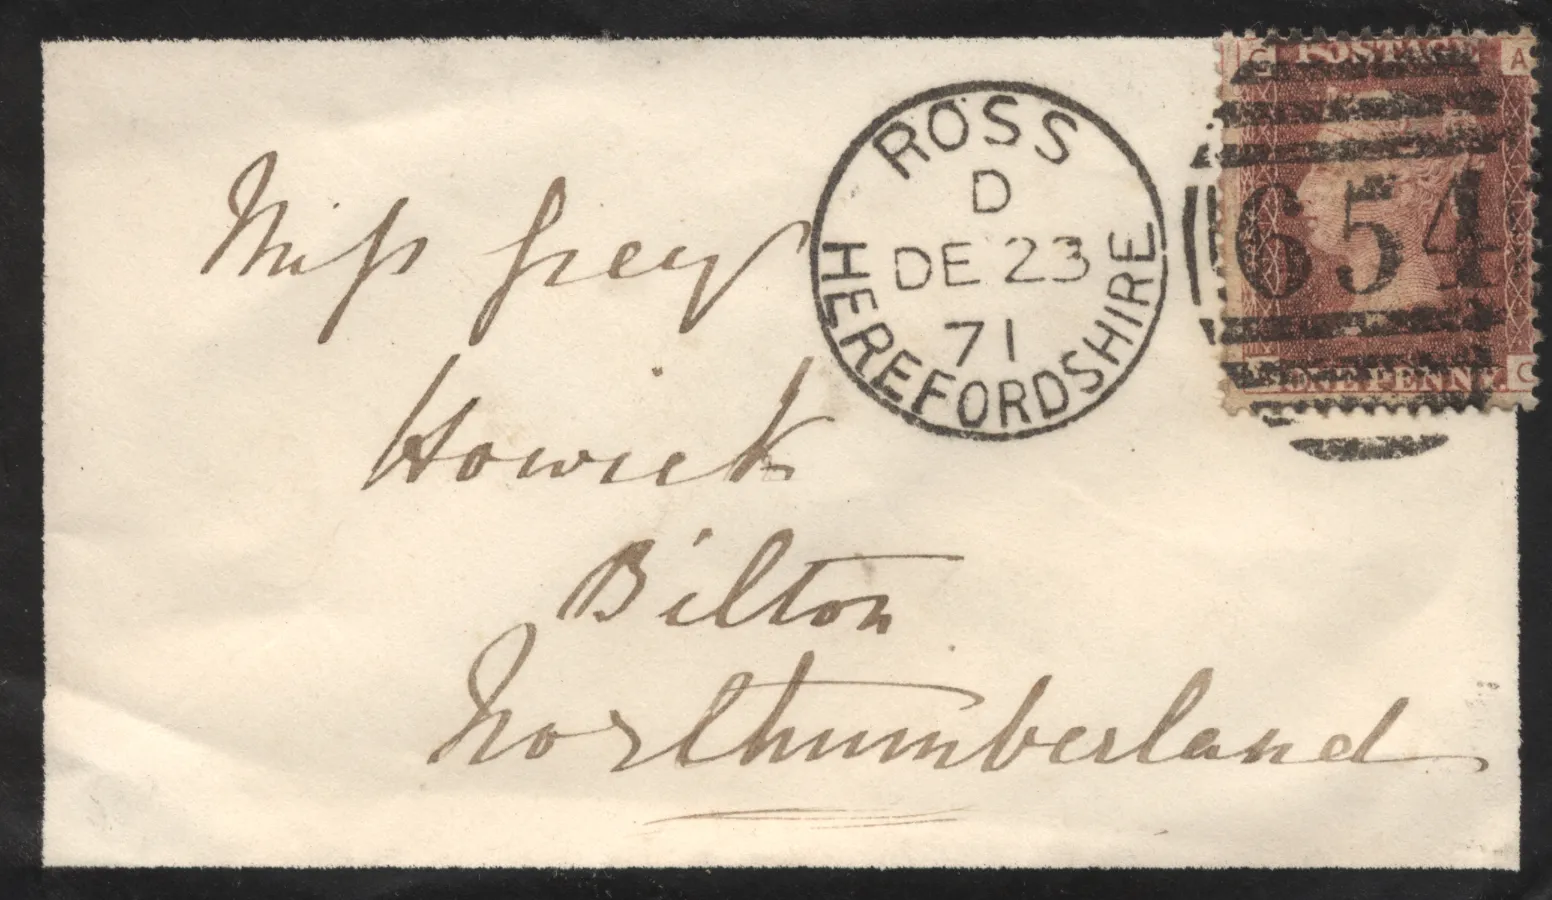 Miss Grey
Howick
Bilton
Northumberland
ROSS
D
DE 23
71
HEREFORDSHIRE
654
G POSTAGE A
ONE PENNY. G